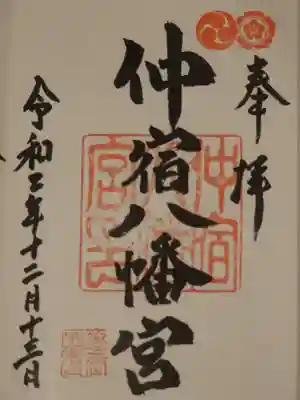 奉拝
仲宿八幡宮
令和三年十二月十三日
仲宿八幡宮印